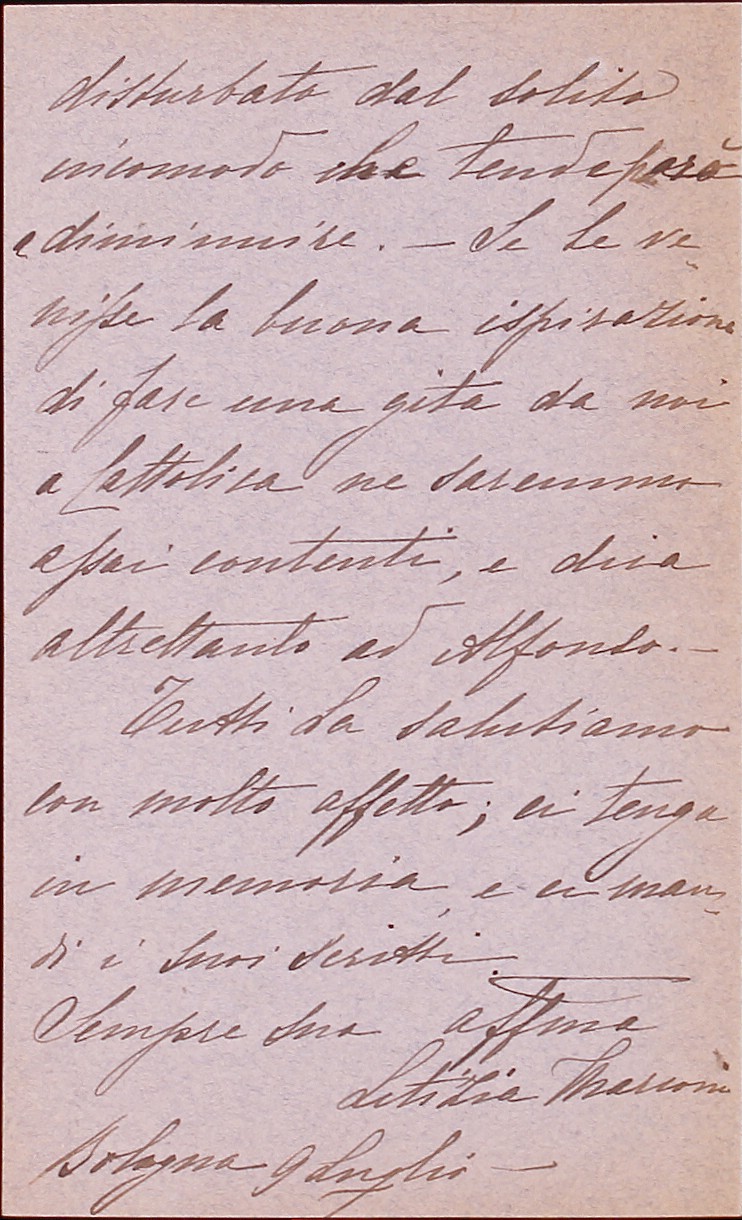 disturbato dal solito
incomodo che tende però
a diminuire. — Se le ve-
nisse la buona ispirazione
di fare una gita da noi
a Cattolica ne saremmo
assai contenti, e dica
altrettanto ad Alfonso. —
Tutti La salutiamo
con molto affetto; ci tenga
in memoria, e ci man-
di i suoi scritti.
Sempre sua affma
Letizia Marconi
Bologna 9 Luglio —